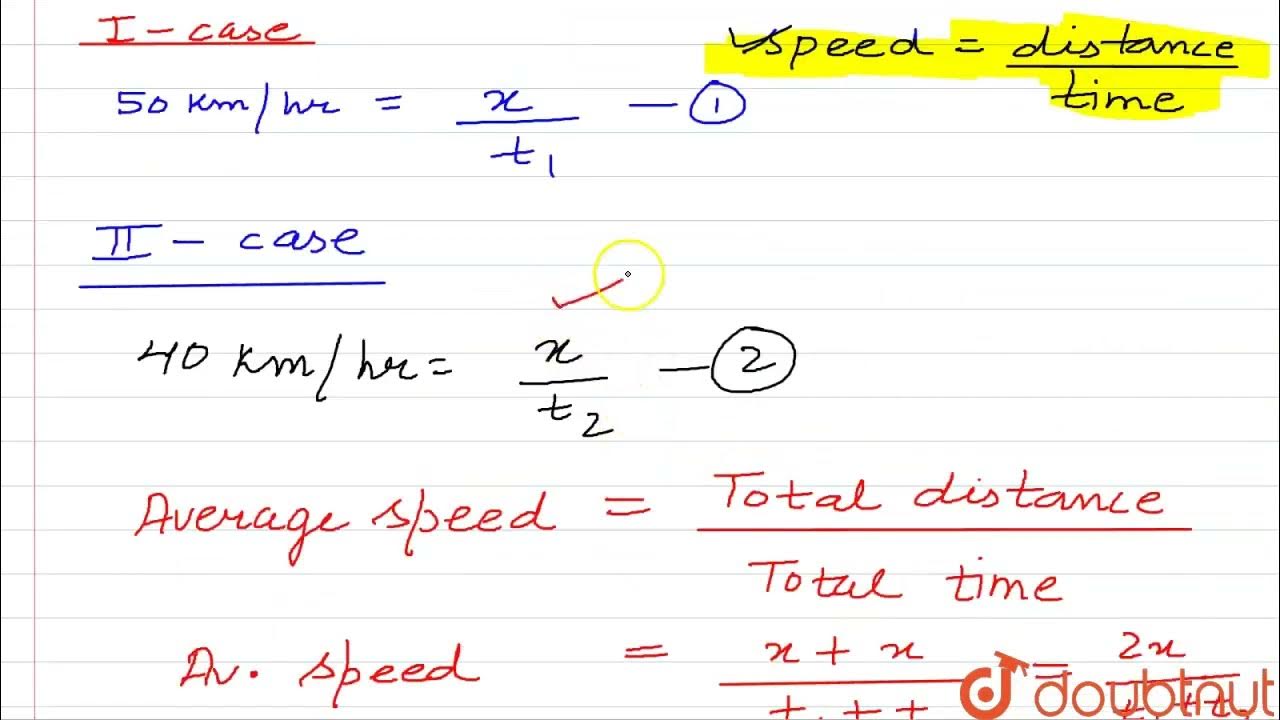 I - case
✓speed = distance / time
50 km/hr = x / t₁ — ①
II - case
40 km/hr = x / t₂ — ②
Average speed = Total distance / Total time
Av. speed = x + x / t₁ + t = 2x
doubtnut